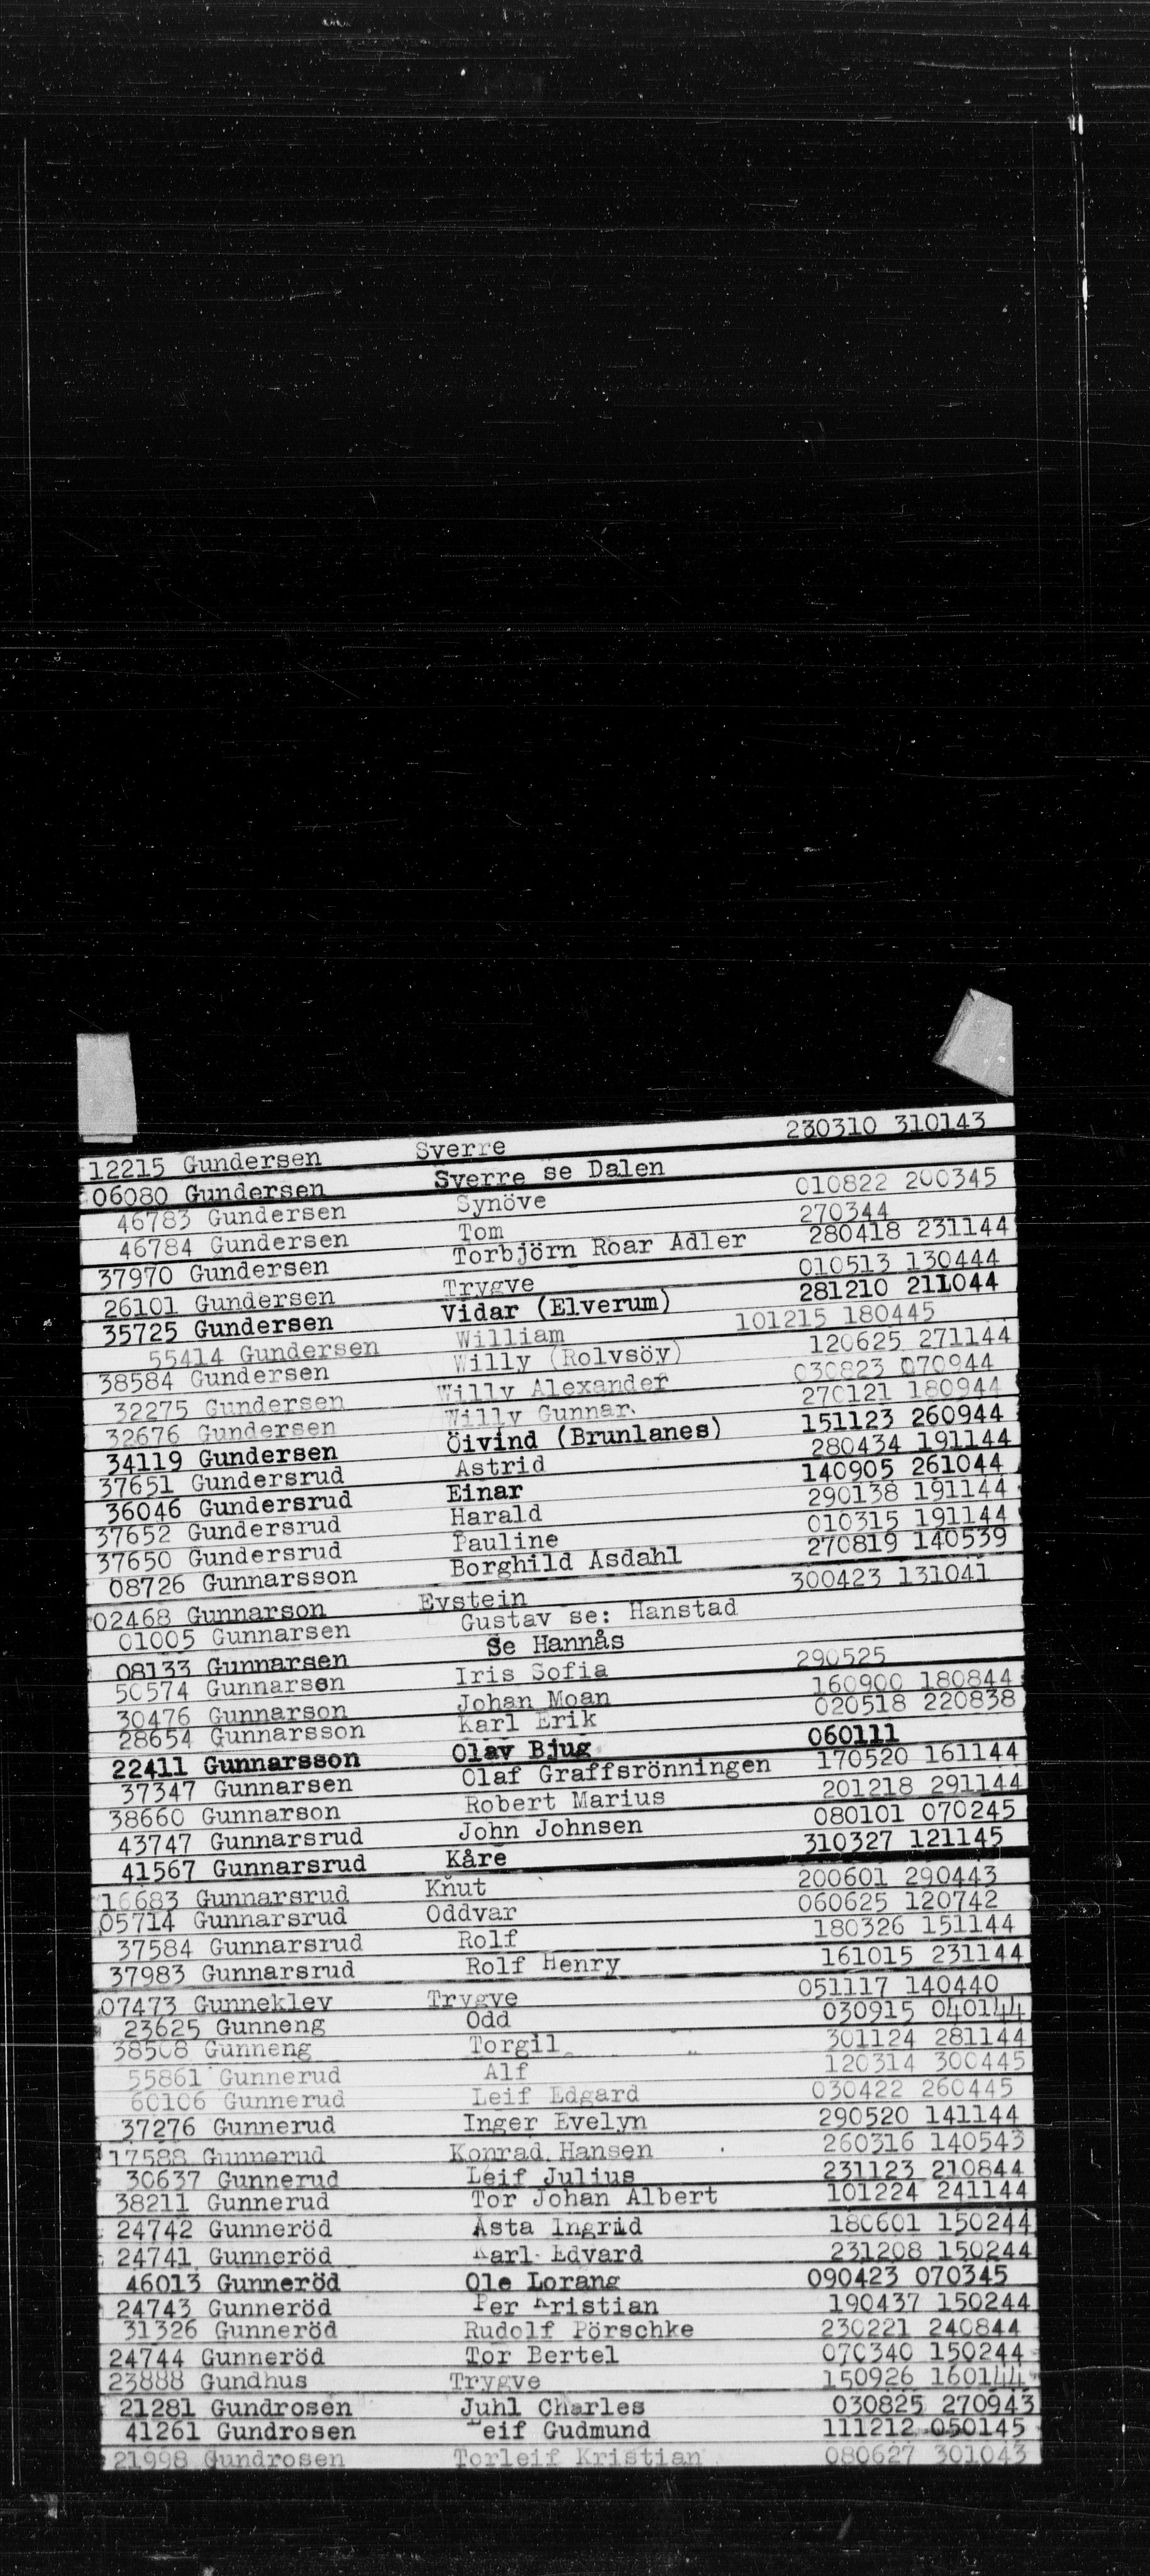 12215 Gundersen Sverre 230310 310143
06080 Gundersen Sverre se Dalen
46783 Gundersen Synöve 010822 200345
46784 Gundersen Tom 270344
37970 Gundersen Torbjörn Roar Adler 280418 231144
26101 Gundersen Trygve 010513 130444
35725 Gundersen Vidar (Elverum) 281210 211044
55414 Gundersen William 101215 180445
38584 Gundersen Willy (Rolvsöy) 120625 271144
32275 Gundersen Willy Alexander 030823 070944
32676 Gundersen Willy Gunnar. 270121 180944
34119 Gundersen Öivind (Brunlanes) 151123 260944
37651 Gundersrud Astrid 280434 191144
36046 Gundersrud Einar 140905 261044
37652 Gundersrud Harald 290138 191144
37650 Gundersrud Pauline 010315 191144
08726 Gunnarsson Borghild Asdahl 270819 140539
02468 Gunnarson Eystein 300423 131041
01005 Gunnarsen Gustav se: Hanstad
08133 Gunnarsen Se Hannås
50574 Gunnarsen Iris Sofia 290525
30476 Gunnarson Johan Moan 160900 180844
28654 Gunnarsson Karl Erik 020518 220838
22411 Gunnarsson Olav Bjug 060111
37347 Gunnarsen Olaf Graffsrönningen 170520 161144
38660 Gunnarson Robert Marius 201218 291144
43747 Gunnarsrud John Johnsen 080101 070245
41567 Gunnarsrud Kåre 310327 121145
16683 Gunnarsrud Knut 200601 290443
05714 Gunnarsrud Oddvar 060625 120742
37584 Gunnarsrud Rolf 180326 151144
37983 Gunnarsrud Rolf Henry 161015 231144
07473 Gunneklev Trygve 051117 140440
23625 Gunneng Odd 030915 040144
38508 Gunneng Torgil 301124 281144
55861 Gunnerud Alf 120314 300445
60106 Gunnerud Leif Edgard 030422 260445
37276 Gunnerud Inger Evelyn 290520 141144
17588 Gunnerud Konrad Hansen 260316 140543
30637 Gunnerud Leif Julius 231123 210844
38211 Gunnerud Tor Johan Albert 101224 241144
24742 Gunneröd Asta Ingrid 180601 150244
24741 Gunneröd Karl Edvard 231208 150244
46013 Gunneröd Ole Lorang 090423 070345
24743 Gunneröd Per Kristian 190437 150244
31326 Gunneröd Rudolf Pörschke 230221 240844
24744 Gunneröd Tor Bertel 070340 150244
23888 Gundhus Trygve 150926 160144
21281 Gundrosen Juhl Charles 030825 270943
41261 Gundrosen Leif Gudmund 111212 050145
21998 Gundrosen Torleif Kristian 080627 301043